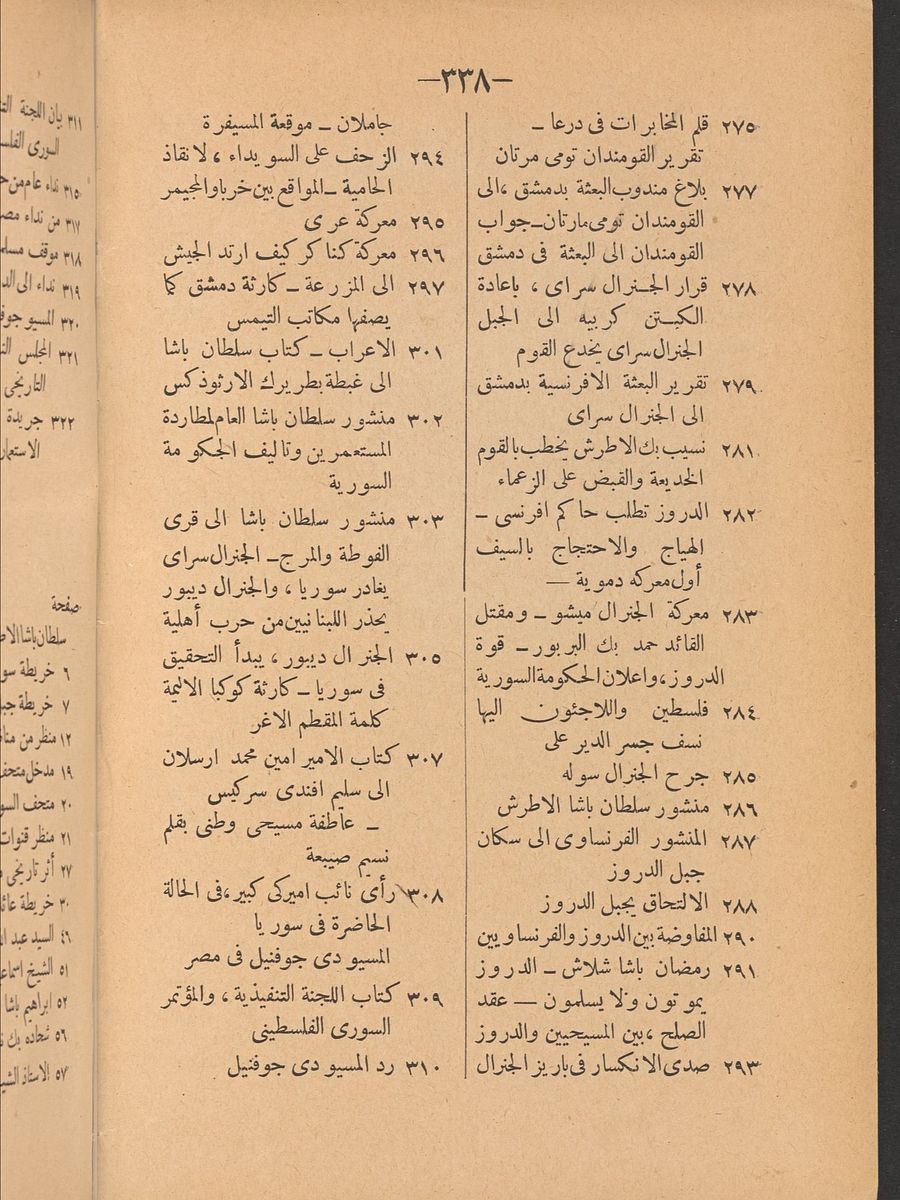 —٣٣٨—
٢٧٥ قلم المخابرات فى درعا —
تقرير القومندان تومى مرتان
٢٧٧ بلاغ مندوب البعثة بدمشق ،الى
القومندان تومى مارتان—جواب
القومندان الى البعثة فى دمشق
٢٧٨ قرار الجنرال سراى ، باعادة
الكبتن كربيه الى الجبل
الجنرال سراى يخدع القوم
٢٧٩ تقرير البعثة الافرنسية بدمشق
الى الجنرال سراى
٢٨١ نسيب بك الاطرش يخطب بالقوم
الخديعة والقبض على الزعماء
٢٨٢ الدروز تطلب حاكم افرنسى —
الهياج والاحتجاج بالسيف
أول معركه دموية —
٢٨٣ معركة الجنرال ميشو — ومقتل
القائد حمد بك البربور — قوة
الدروز،واعلان الحكومة السورية
٢٨٤ فلسطين واللاجئون اليها
نسف جسر الدير على
٢٨٥ جرح الجنرال سوله
٢٨٦ منشور سلطان باشا الاطرش
٢٨٧ المنشور الفرنساوى الى سكان
جبل الدروز
٢٨٨ الالتحاق بجبل الدروز
٢٩٠ المفاوضة بين الدروز والفرنساويين
٢٩١ رمضان باشا شلاش — الدروز
يموتون ولا يسلمون — عقد
الصلح ،بين المسيحيين والدروز
٢٩٣ صدى الانكسار فى باريز الجنرال
جاملان — موقعة المسيفرة
٢٩٤ الزحف على السويداء ، لانقاذ
الحامية —المواقع بين خربا والمجيمر
٢٩٥ معركة عرى
٢٩٦ معركة كناكر كيف ارتد الجيش
٢٩٧ الى المزرعة — كارثة دمشق كما
يصفها مكاتب التيمس
٣٠١ الاعراب — كتاب سلطان باشا
الى غبطة بطريرك الارثوذكس
٣٠٢ منشور سلطان باشا العام لمطاردة
المستعمرين وتاليف الحكومة
السورية
٣٠٣ منشور سلطان باشا الى قرى
الغوطة والمرج — الجنرال سراى
يغادر سوريا ، والجنرال ديبور
يحذر اللبنانيين من حرب أهلية
٣٠٥ الجنرال ديبور ، يبدأ التحقيق
فى سوريا — كارثة كوكبا الاليمة
كلمة المقطم الاغر
٣٠٧ كتاب الامير امين محمد ارسلان
الى سليم افندى سركيس
— عاطفة مسيحى وطنى بقلم
نسيم صيبعة
٣٠٨ رأى نائب اميركى كبير ،فى الحالة
الحاضرة فى سوريا
المسيو دى جوفنيل فى مصر
٣٠٩ كتاب اللجنة التنفيذية ، والمؤتمر
السورى الفلسطينى
٣١٠ رد المسيو دى جوفنيل
٣١١ بيان اللجنة
السورى
٣١٥ نداء عام من
٣١٧ من نداء
٣١٨ موقف
٣١٩ نداء الى
٣٢٠ المسيو
٣٢١ المجلس
التاريخى
٣٢٢ جريدة
صفحة
سلطان باشا
٦ خريطة
٧ خريطة
١٢ منظر من
١٩ مدخل
٢٠ متحف
٢١ منظر قنوات
٢٧ أثر تاريخى
٣٠ خريطة
٤٦ السيد
٥١ الشيخ
٥٢ ابراهيم باشا
٥٦ شحاده بك
٥٧ الاستاذ